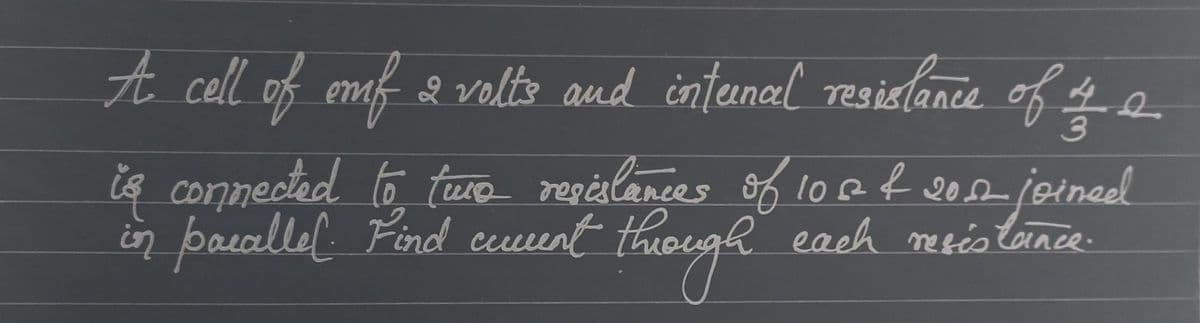 A cell of emf 2 volts and internal resistance of 4/3 Ω
is connected to two resistances of 10 Ω & 20 Ω joined
in parallel. Find current through each resistance.